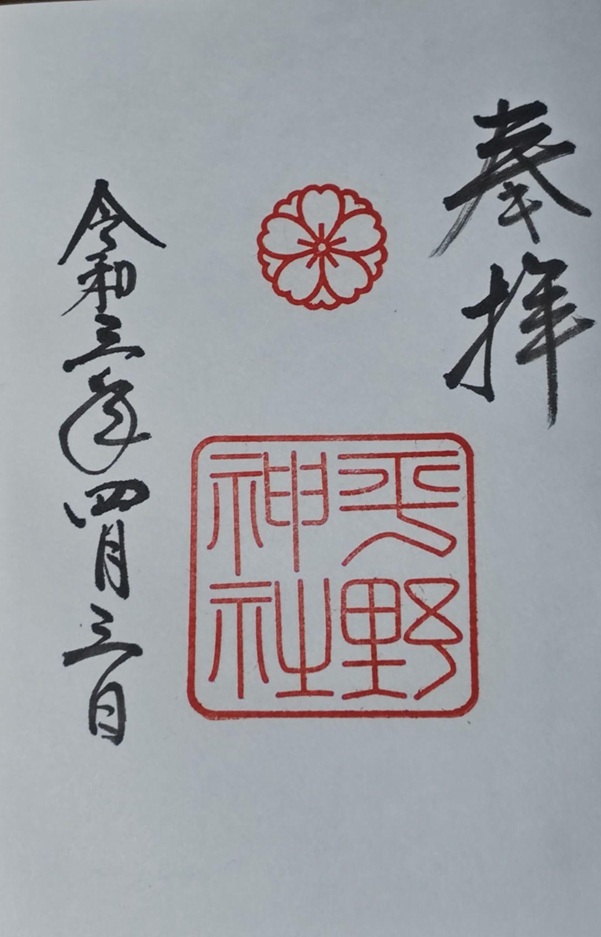 奉拝
平野
神社
令和三年四月三日